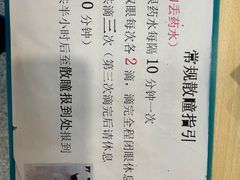 常规散瞳指引
丢药水）
眼药水每隔10分钟一次
双眼每次各2滴，滴完全程闭眼休息
滴三次（第三次滴完后请休息
0分钟）
半小时后至散瞳报到处报到